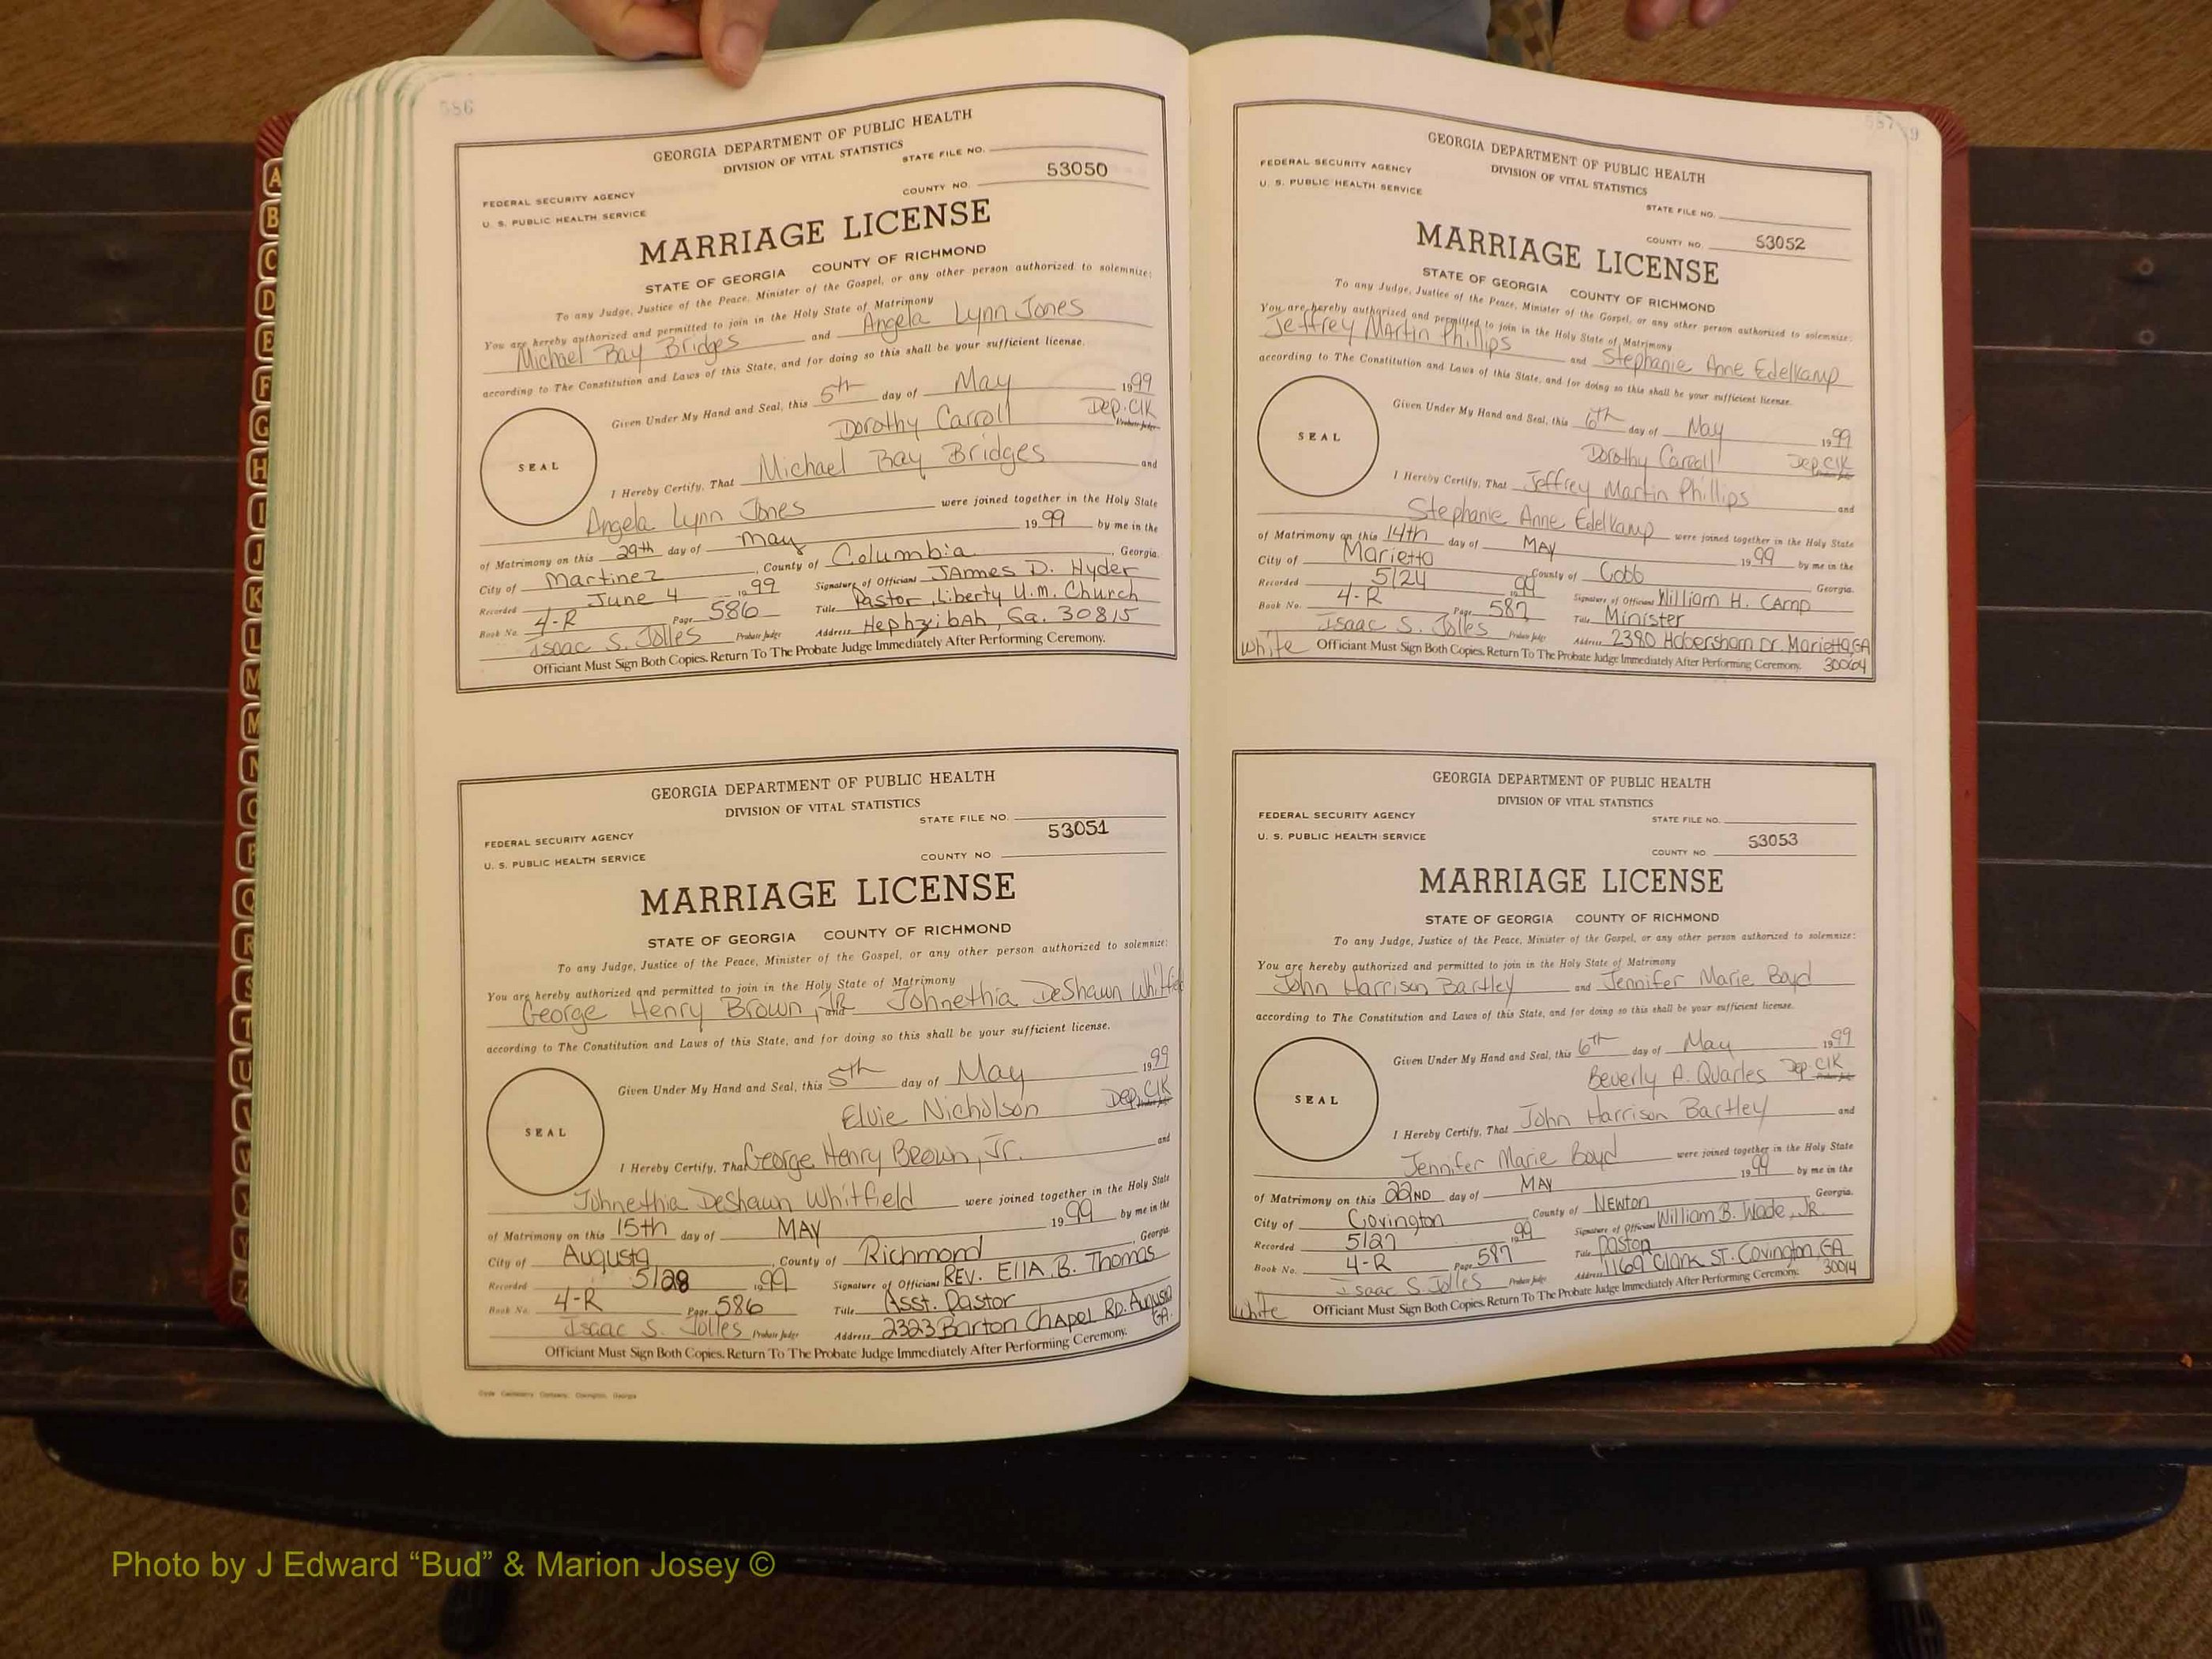 586
GEORGIA DEPARTMENT OF PUBLIC HEALTH
DIVISION OF VITAL STATISTICS
STATE FILE NO.
FEDERAL SECURITY AGENCY
U. S. PUBLIC HEALTH SERVICE
COUNTY NO. 53050
MARRIAGE LICENSE
STATE OF GEORGIA COUNTY OF RICHMOND
To any Judge, Justice of the Peace, Minister of the Gospel, or any other person authorized to solemnize:
You are hereby authorized and permitted to join in the Holy State of Matrimony
Michael Bay Bridges and Angela Lynn Jones
according to The Constitution and Laws of this State, and for doing so this shall be your sufficient license.
Given Under My Hand and Seal, this 5th day of May 1999
Dorothy Carroll Dep. Clk
Probate Judge
SEAL
I Hereby Certify, That Michael Bay Bridges and
Angela Lynn Jones were joined together in the Holy State
of Matrimony on this 29th day of May 1999 by me in the
City of Martinez, County of Columbia, Georgia.
Recorded June 4 1999 Signature of Official JAmes D. Hyder
Book No. 4-R Page 586 Title Pastor, Liberty U.M. Church
Isaac S. Jolles Probate Judge Address Hephzibah, Ga. 30815
Officiant Must Sign Both Copies. Return To The Probate Judge Immediately After Performing Ceremony.
GEORGIA DEPARTMENT OF PUBLIC HEALTH
DIVISION OF VITAL STATISTICS
STATE FILE NO.
FEDERAL SECURITY AGENCY
U. S. PUBLIC HEALTH SERVICE
COUNTY NO 53051
MARRIAGE LICENSE
STATE OF GEORGIA COUNTY OF RICHMOND
To any Judge, Justice of the Peace, Minister of the Gospel, or any other person authorized to solemnize:
You are hereby authorized and permitted to join in the Holy State of Matrimony
George Henry Brown, JR. and Johnethia DeShawn Whitfield
according to The Constitution and Laws of this State, and for doing so this shall be your sufficient license.
Given Under My Hand and Seal, this 5th day of May 1999
Elvie Nicholson Dep. Clk
SEAL
I Hereby Certify, That George Henry Brown, Jr. and
Johnethia DeShawn Whitfield were joined together in the Holy State
of Matrimony on this 15th day of MAY 1999 by me in the
City of Augusta, County of Richmond, Georgia
Recorded 5/28 1999 Signature of Official REV. EllA. B. Thomas
Book No. 4-R Page 586 Title Asst. Pastor
Isaac S. Jolles Probate Judge Address 2323 Barton Chapel RD. Augusta GA.
Officiant Must Sign Both Copies. Return To The Probate Judge Immediately After Performing Ceremony.
GEORGIA DEPARTMENT OF PUBLIC HEALTH
DIVISION OF VITAL STATISTICS
FEDERAL SECURITY AGENCY
U. S. PUBLIC HEALTH SERVICE
STATE FILE NO.
COUNTY NO. 53052
MARRIAGE LICENSE
STATE OF GEORGIA COUNTY OF RICHMOND
To any Judge, Justice of the Peace, Minister of the Gospel, or any other person authorized to solemnize:
You are hereby authorized and permitted to join in the Holy State of Matrimony
Jeffrey Martin Phillips and Stephanie Anne Edelkamp
according to The Constitution and Laws of this State, and for doing so this shall be your sufficient license.
Given Under My Hand and Seal, this 6th day of May 1999
Dorothy Carroll Dep. Clk
SEAL
I Hereby Certify, That Jeffrey Martin Phillips and
Stephanie Anne Edelkamp were joined together in the Holy State
of Matrimony on this 14th day of MAY 1999 by me in the
City of Marietta County of Cobb Georgia.
Recorded 5/24 99 Signature of Official William H. CAmp
Book No. 4-R Page 587 Title Minister
Isaac S. Jolles Probate Judge Address 2390 Habersham Dr. Marietta, GA 30064
White Officiant Must Sign Both Copies. Return To The Probate Judge Immediately After Performing Ceremony.
GEORGIA DEPARTMENT OF PUBLIC HEALTH
DIVISION OF VITAL STATISTICS
FEDERAL SECURITY AGENCY
U. S. PUBLIC HEALTH SERVICE
STATE FILE NO.
COUNTY NO 53053
MARRIAGE LICENSE
STATE OF GEORGIA COUNTY OF RICHMOND
To any Judge, Justice of the Peace, Minister of the Gospel, or any other person authorized to solemnize:
You are hereby authorized and permitted to join in the Holy State of Matrimony
John Harrison Bartley and Jennifer Marie Boyd
according to The Constitution and Laws of this State, and for doing so this shall be your sufficient license.
Given Under My Hand and Seal, this 6th day of May 1999
Beverly A. Quarles Dep. Clk
SEAL
I Hereby Certify, That John Harrison Bartley and
Jennifer Marie Boyd were joined together in the Holy State
of Matrimony on this 22ND day of MAY 1999 by me in the
City of Covington County of Newton Georgia.
Recorded 5/27 1999 Signature of Official William B. Wade, JR.
Book No. 4-R Page 587 Title Pastor
Isaac S Jolles Probate Judge Address 1169 Clark ST. Covington, GA 30014
White Officiant Must Sign Both Copies. Return To The Probate Judge Immediately After Performing Ceremony.
A
B
C
D
E
F
G
H
I
J
K
L
M
M
N
O
P
Q
R
S
T
U
V
W
X
Y
Z
Photo by J Edward “Bud” & Marion Josey ©